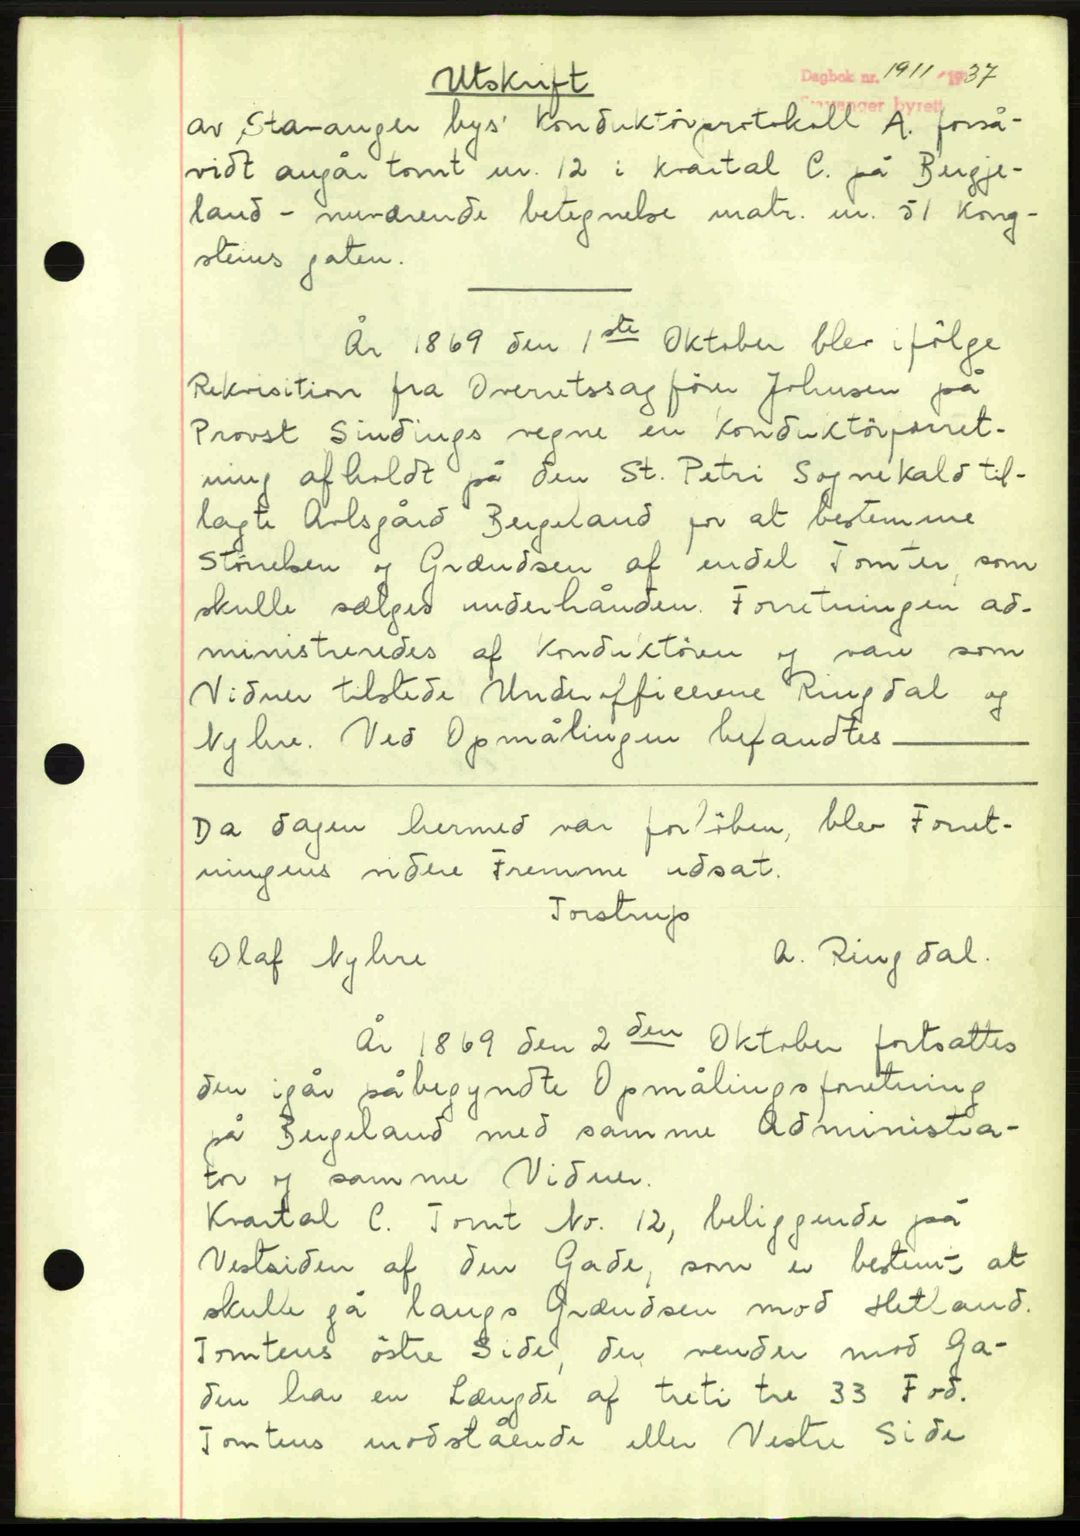 Utskrift
Dagbok nr. 1911 /1937
Stavanger byrett
av Stavanger bys' Konduktörprotokoll A. forså-
vidt angår tomt nr. 12 i kvartal C. på Bergje-
land - nuværende betegnelse matr. nr. 51 Kong-
steins gaten.
År 1869 den 1ste Oktober blev ifölge
Rekvisition fra Overretssagförer Johnsen på
Provst Sindings vegne en Konduktörforret-
ning afholdt på den St. Petri Sognekald til-
lagte Avlsgård Bergeland for at bestemme
Störrelsen og Grændsen af endel Tomter, som
skulle sælges underhånden. Forretningen ad-
ministreredes af Konduktören og vare som
Vidner tilstede Underofficerene Ringdal og
Nyhre. Ved Opmålingen befandtes
Da dagen hermed var forlöben, blev Forret-
ningens videre Fremme udsat.
Torstrup
Olaf Nyhre A. Ringdal.
År 1869 den 2den Oktober fortsattes
den igår påbegyndte Opmålingsforretning
på Bergeland med samme Administra-
tor og samme Vidner.
Kvartal C. Tomt No. 12, beliggende på
Vestsiden af den Gade, som er bestemt at
skulle gå langs Grændsen mod Hetland.
Tomtens östre Side, der vender mod Ga-
den har en Længde af treti tre 33 Fod.
Tomtens modstående eller Vestre Side